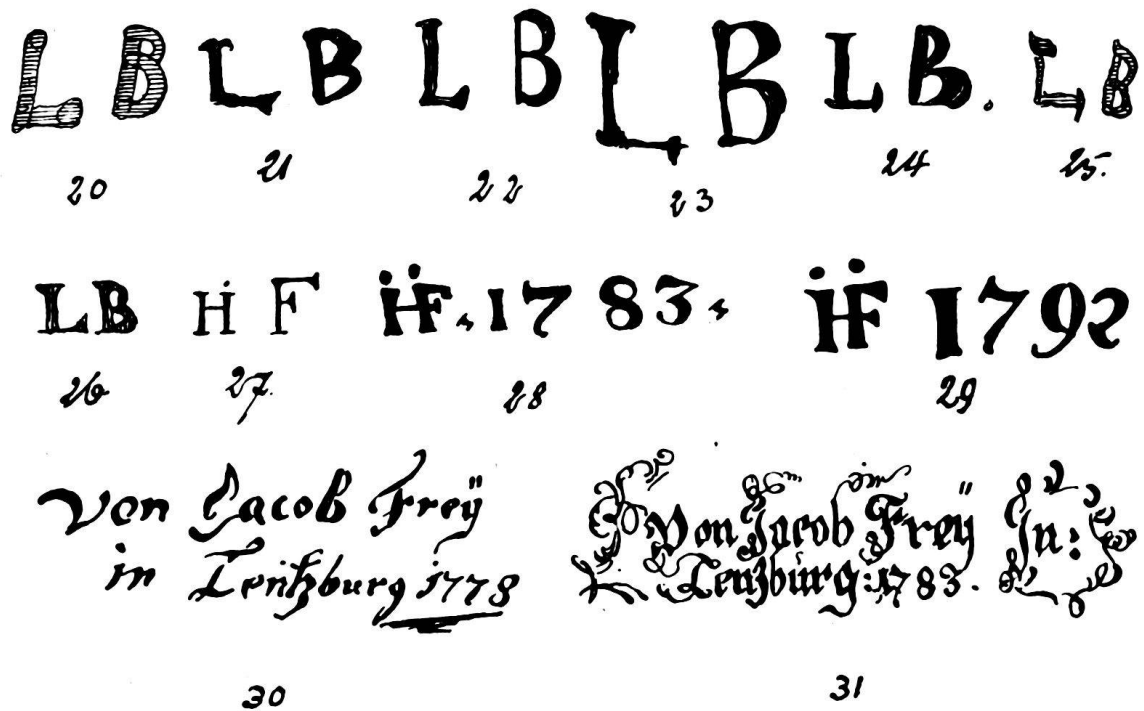 L B L B L B L B L B. L B
20 21 22 23 24 25.
LB HF HF. 1783. HF 1792
26 27. 28 29
Von Jacob Freÿ
in Lentzburg 1778
30
Von Jacob Freÿ In:
Lentzburg: 1783.
31